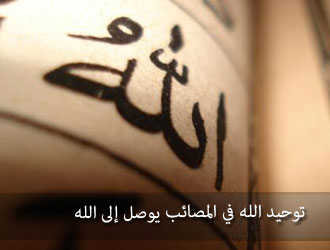 اللهُ
توحيد الله في المصائب يوصل إلى الله